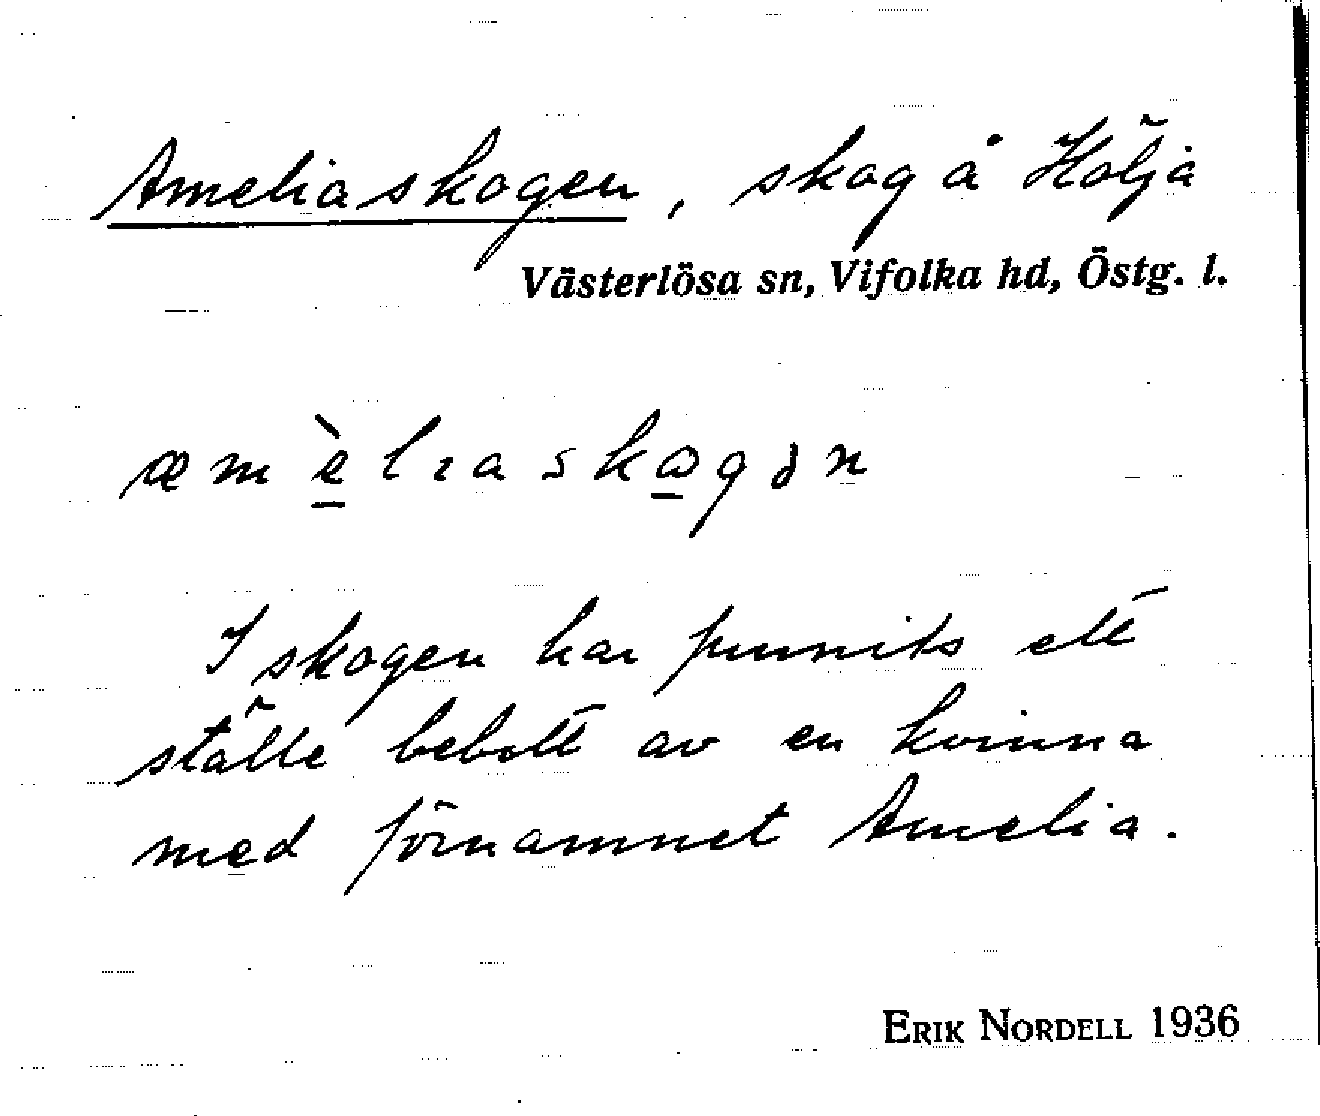 Ameliaskogen, skog å Hölja
Västerlösa sn, Vifolka hd, Östg. l.
æmèlıaskogən
I skogen har funnits ett
ställe bebott av en kvinna
med förnamnet Amelia.
ERIK NORDELL 1936